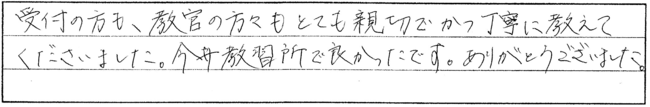 受付の方も、教官の方々もとても親切でかつ丁寧に教えて
くださいました。今井教習所で良かったです。ありがとうございました。